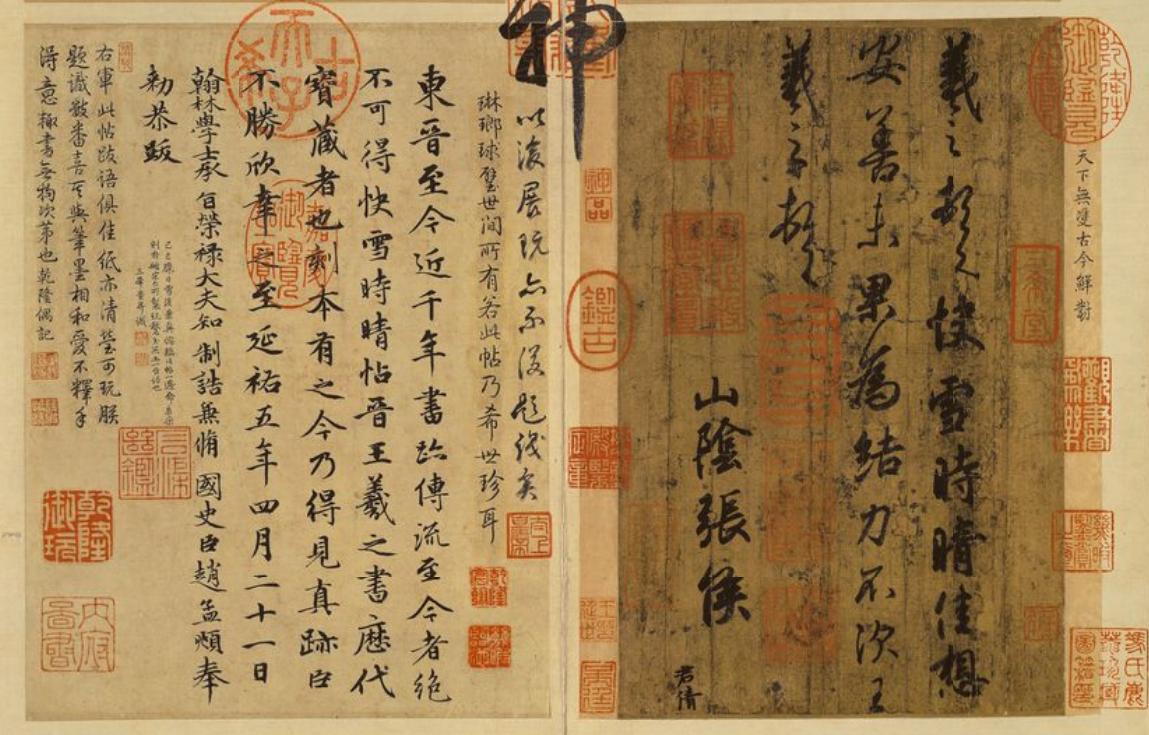 乾隆鑑賞
天下無雙古今鮮對
羲之頓首快雪時晴佳想
安善未果為結力不次王
羲之頓首
山陰張侯
君倩
神品
鑑古
神
以後展玩亦不復題識矣
琳瑯球璧世間所有若此帖乃希世珍耳
東晉至今近千年書跡傳流至今者絕
不可得快雪時晴帖晉王羲之書歷代
寶藏者也刻本有之今乃得見真跡臣
不勝欣幸之至延祐五年四月二十一日
古希天子
翰林學士承旨榮祿大夫知制誥兼脩國史臣趙孟頫奉
勑恭跋
右軍此帖跋語俱佳紙亦清瑩可玩朕
題識數番喜其與筆墨相和愛不釋手
得意輒書無拘次第也乾隆偶記
乾隆御玩
內府圖書